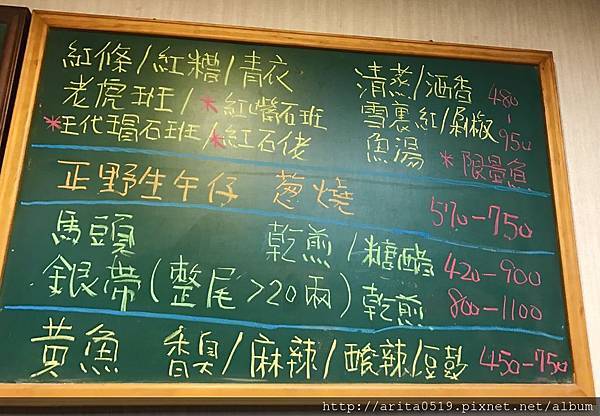 紅條/紅糟/青衣 清蒸/酒香 480-950
老虎班/*紅螢石班 雪裏紅/剁椒
*玳瑁石班/*紅石佬 魚湯 *限量魚
正野生午仔 蔥燒 570-750
馬頭 乾煎/糖醋 420-900
銀帶(整尾>20兩) 乾煎 800-1100
黃魚 香臭/麻辣/酸辣/豆鼓 450-750
http://arita0519.pixnet.net/album